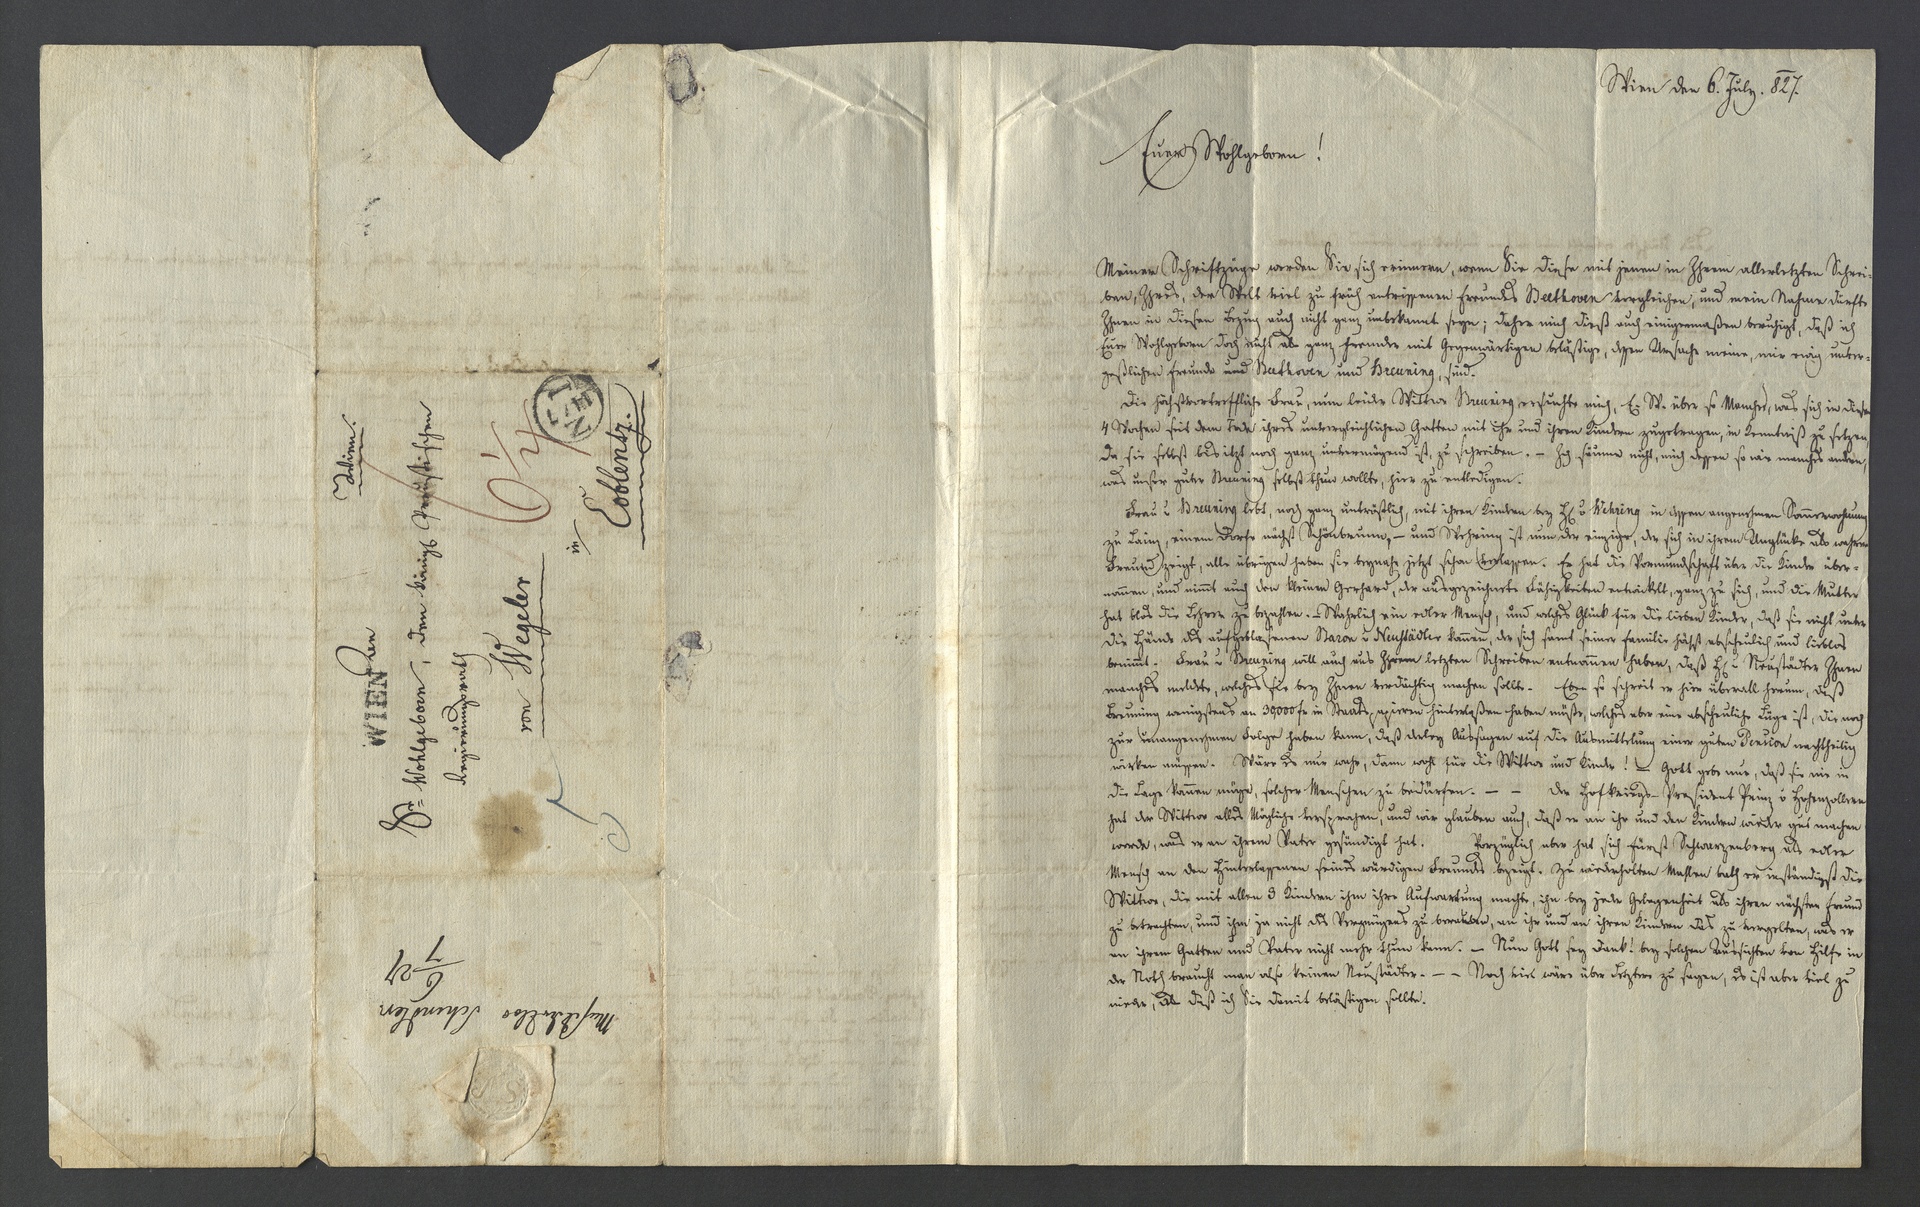 Wien den 6. July. 827.
Euer Wohlgeborn!
Meiner Schriftzüge werden Sie sich erinnern, wenn Sie diese mit jenen in Ihrem allerletzten Schrei-
ben, Ihres, der Welt viel zu früh entrissenen Freundes Beethoven vergleichen, und mein Nahme dürfte
Ihnen in diesem Bezug auch nicht ganz unbekannt seyn; daher mich dieß auch einigermaßen beruhigt, daß ich
Euer Wohlgeborn doch nicht als ganz Fremder mit Gegenwärtigen belästige, dessen Ursache meine, mir ewig unver-
geßlichen Freunde und Beethoven und Breuning, sind.
Die höchstvortreffliche Frau, nun leider Wittwe Breuning ersuchte mich, Ew. W. über so Manches, was sich in diesen
4 Wochen seit dem Tode ihres unvergleichlichen Gatten mit ihr und ihren Kindern zugetragen, in Kenntniß zu setzen,
da sie selbst bis itzt noch ganz unvermögend ist, zu schreiben. – Ich säume nicht, mich dessen so wie manches andern,
was unser guter Breuning selbst thun wollte, hier zu entledigen.
Frau v Breuning lebt, noch ganz untröstlich, mit ihren Kindern bey H. v Wehring in dessen angenehmen Sommerwohnung
zu Lainz, einem Dorfe nächst Schönbrunn, – und Wehring ist nun der einzige, der sich in ihrem Unglücke als wahrer
Freund zeigt, alle übrigen haben sie beynahe jetzt schon verlassen. Er hat die Vormundschaft über die Kinder über-
nommen, und nimmt auch den kleinen Gerhard, der ausgezeichnete Fähigkeiten entwickelt, ganz zu sich, und die Mutter
hat blos die Lehrer zu bezahlen. – Wahrlich ein edler Mensch, und welches Glück für die lieben Kinder, daß sie nicht unter
die Hände des aufgeblasenen Baron v Neustädter kamen, der sich samt seiner Familie höchst abscheulich und lieblos
benimmt. Frau v Breuning will auch aus Ihrem letzten Schreiben entnommen haben, daß H. v Neustädter Ihnen
manches meldete, welches sie bey Ihnen verdächtig machen sollte. Eben so schreit er hier überall herum, daß
Breuning wenigstens an 30000 f in Staatspapieren hinterlaßen haben müßte, welches aber eine abscheuliche Lüge ist, die noch
zur unangenehmen Folge haben kann, daß derley Aussagen auf die Ausmittelung einer guten Pension nachtheilig
wirken müssen. Wäre es nur wahr, dann wohl für die Wittwe und Kinder! – Gott gebe nur, daß sie nie in
die Lage kommen möge, solcher Menschen zu bedürfen. – – Der Hofkriegs-President Prinz v Hohenzollern
hat der Wittwe alles Mögliche versprochen, und wir glauben auch, daß er an ihr und den Kindern wieder gut machen
werde, was er an ihrem Vater gesündigt hat. Vorzüglich aber hat sich Fürst Schwarzenberg als edler
Mensch an den Hinterlassenen seines würdigen Freundes bezeigt. Zu wiederholten Mahlen bath er inständigst die
Wittwe, die mit allen 3 Kindern ihm ihre Aufwartung machte, ihn bey jeder Gelegenheit als ihren nächsten Freund
zu betrachten, und ihn ja nicht des Vergnügens zu berauben, an ihr und an ihren Kindern das zu vergelten, was er
an ihrem Gatten und Vater nicht mehr thun kann. – Nun Gott sey Dank! bey solchen Aussichten von Hilfe in
der Noth braucht man also keinen Neustädter. – – Noch viel wäre über Letztern zu sagen, es ist aber viel zu
nieder, als daß ich Sie damit belästigen sollte.
Wien.
WIEN
Wohlgeborn, dem königl. Preußischen
Regierungsrath
von Wegeler
in
Coblentz.
6 1/4
Schindler
6/7 27